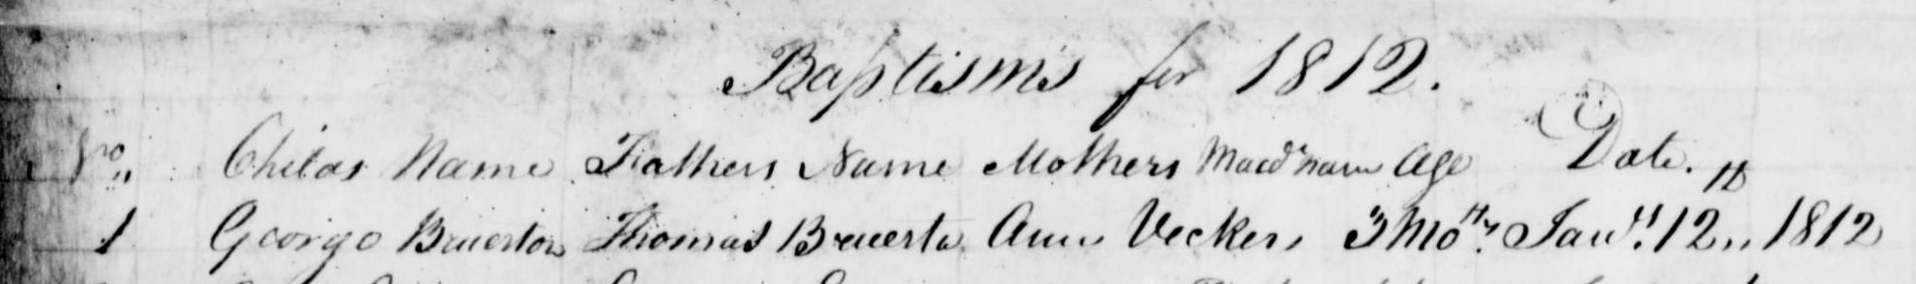 Baptisms for 1812.
No. Childs Name Fathers Name Mothers Maidn name Age Date.
1 George Bruerton Thomas Bruerto Ann Vickers 3 Moths Jany 12th 1812